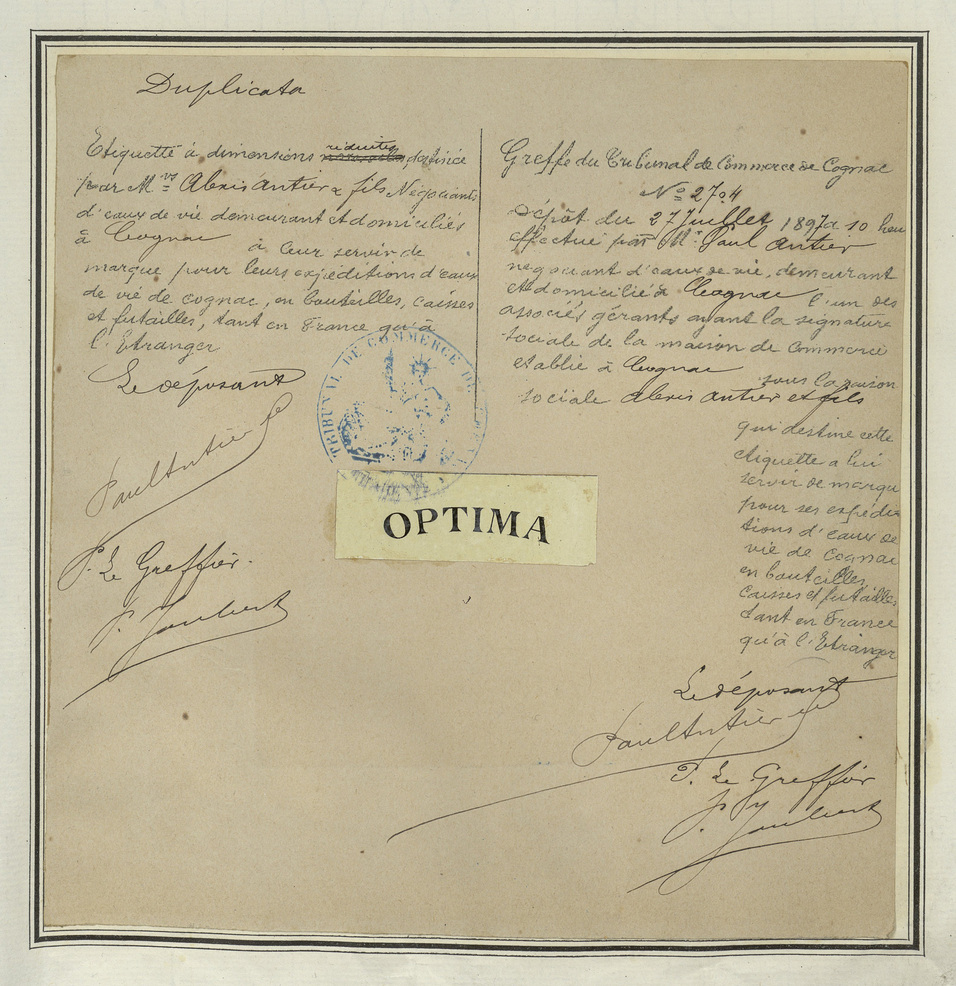 Duplicata
Etiquette à dimensions réduites destinée
par Mrs Alexis Antier & fils Negociants
d'eaux de vie demeurant et domiciliés
à Cognac à leur servir de
marque pour leurs expéditions d'eaux
de vie de cognac, en bouteilles, caisses
et futailles, tant en France qu'à
l'Etranger
Le déposant
Paul Antier
P. Le Greffier.
P. Joubert
Greffe du Tribunal de Commerce de Cognac
No 2704
Dépôt du 27 Juillet 1897 à 10 heu
effectué par Mr Paul Antier
negociant d'eaux de vie, demeurant
et domicilié à Cognac l'un des
associés gérants ayant la signature
sociale de la maison de Commerce
etablie à Cognac sous la raison
sociale Alexis Antier et fils
qui destine cette
étiquette a lui
servir de marque
pour ses expédi
tions d'eaux de
vie de Cognac
en bouteilles,
caisses et futailles,
tant en France
qu'à l'Etranger
Le déposant
Paul Antier
P. Le Greffier
P. Joubert
TRIBUNAL DE COMMERCE DE
OPTIMA